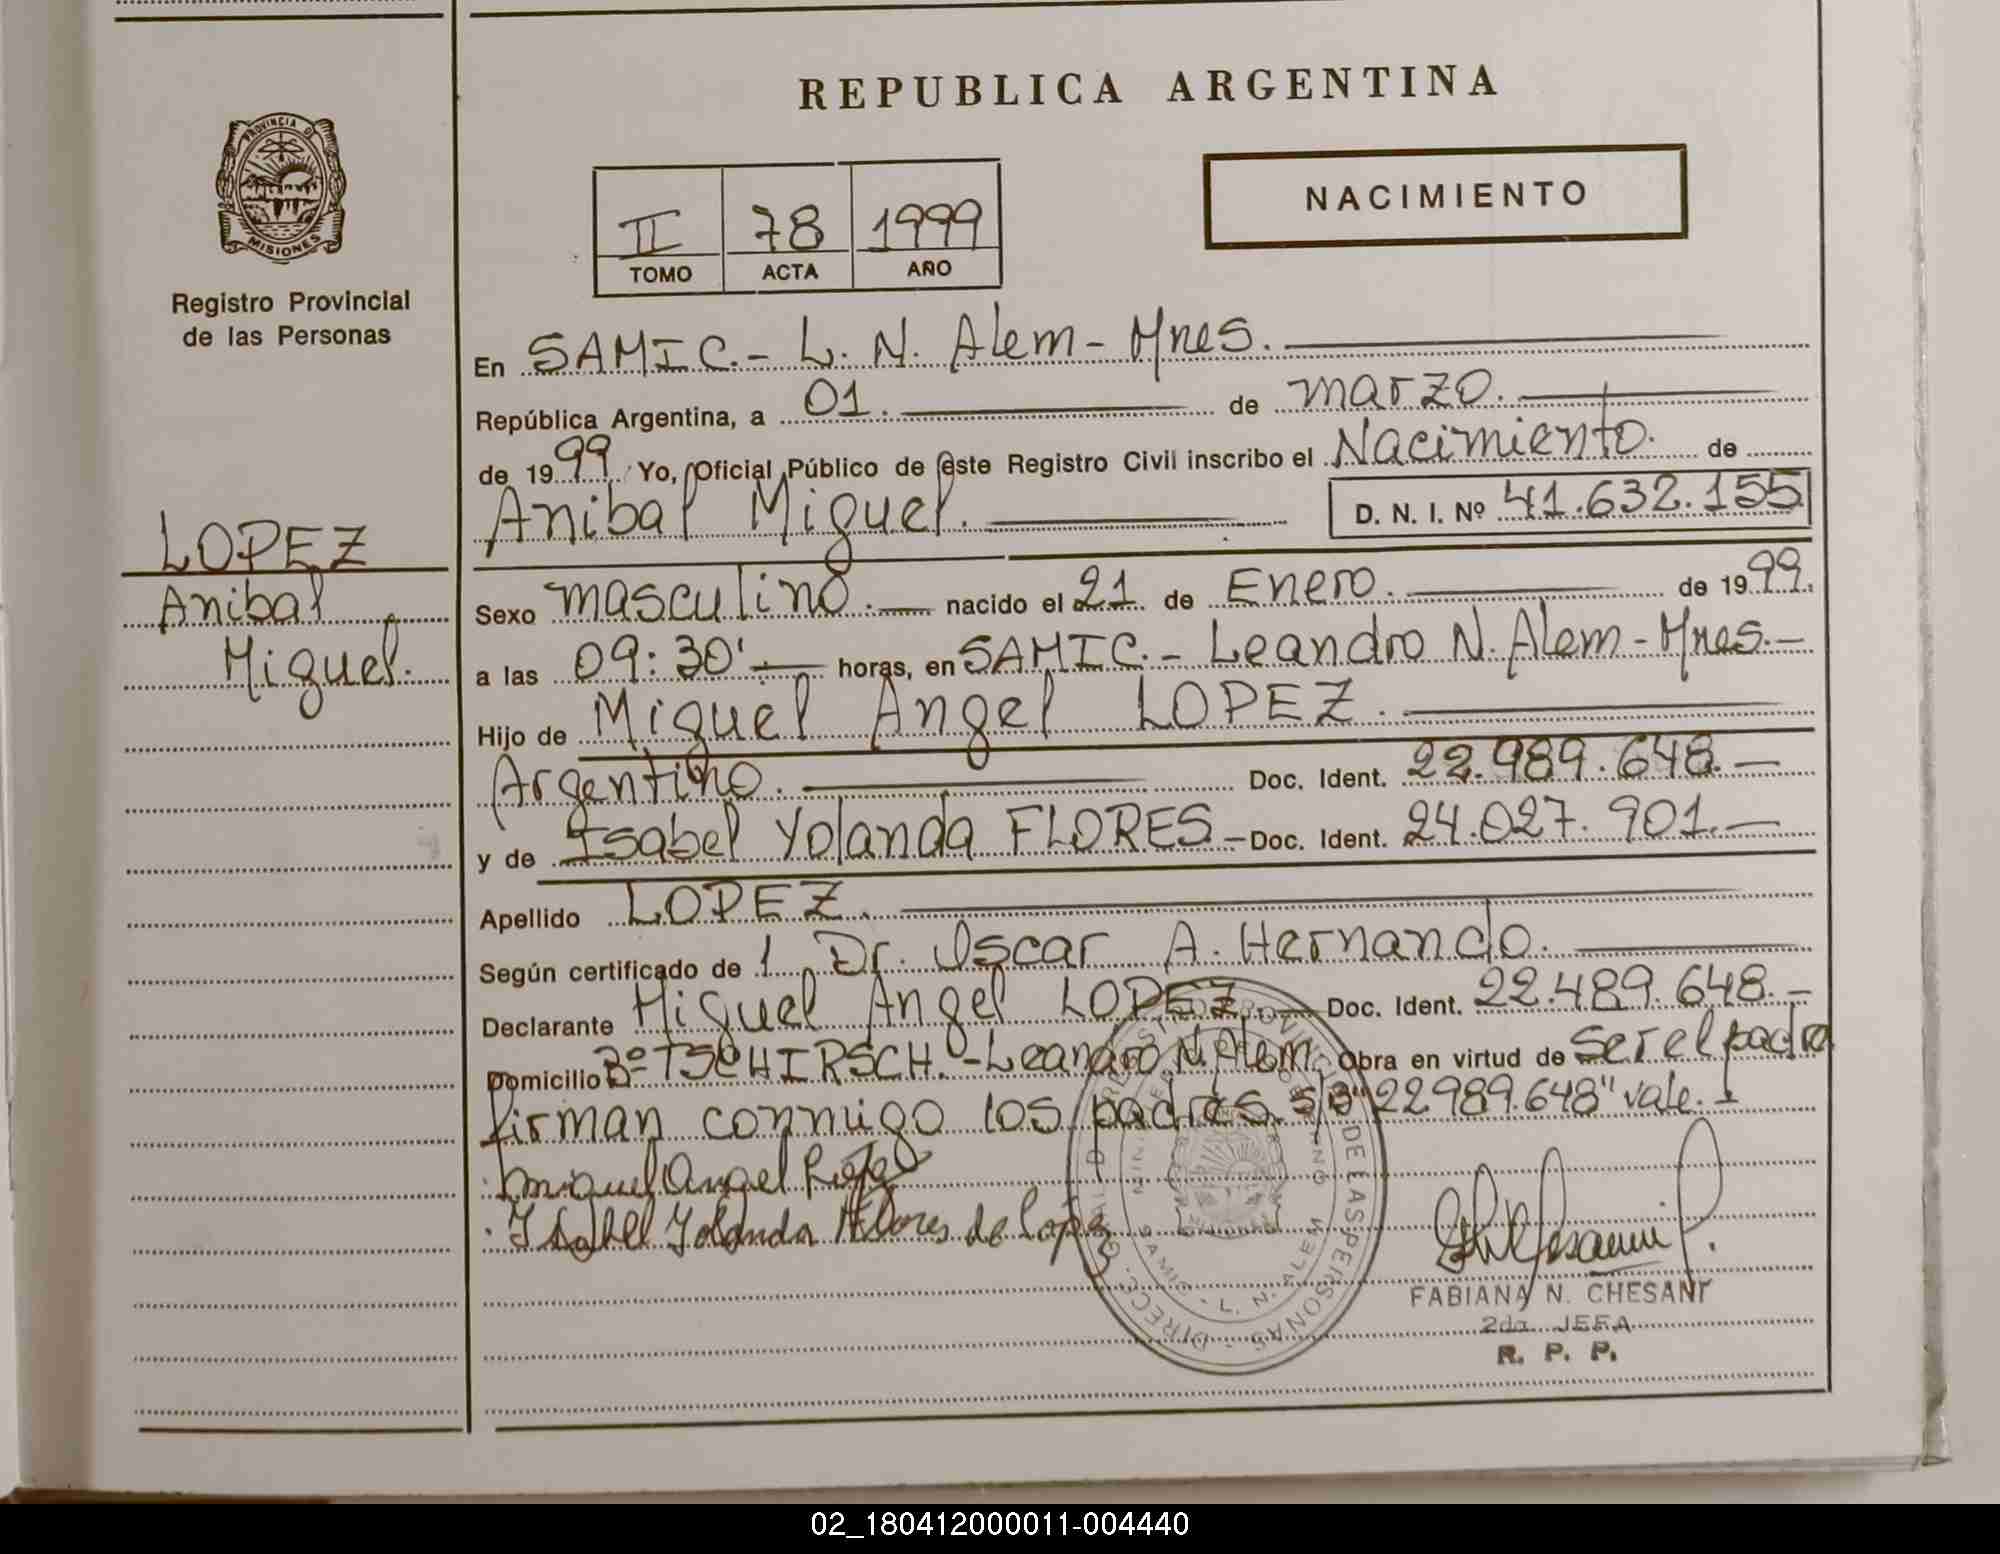 REPUBLICA ARGENTINA
NACIMIENTO
II 78 1999
TOMO ACTA AÑO
PROVINCIA DE
MISIONES
Registro Provincial
de las Personas
LOPEZ
Anibal
Miguel.
En SAMIC.- L. N. Alem - Mnes.
República Argentina, a 01. de marzo.
de 1999. Yo, Oficial Público de este Registro Civil inscribo el Nacimiento. de
Anibal Miguel. D. N. I. Nº 41.632.155
Sexo masculino. nacido el 21 de Enero. de 1999.
a las 09:30' horas, en SAMIC.- Leandro N. Alem - Mnes.-
Hijo de Miguel Angel LOPEZ.
Argentino. Doc. Ident. 22.989.648.-
y de Isabel Yolanda FLORES - Doc. Ident. 24.027.901.-
Apellido LOPEZ.
Según certificado de 1 Dr. Oscar A. Hernando.
Declarante Miguel Angel LOPEZ.- Doc. Ident. 22.489.648.-
Domicilio Bº TSCHIRSCH.-Leandro N. Alem. Obra en virtud de ser el padre
firman conmigo los padres. S/B "22.989.648" vale.-
Miguel Angel
Isabel Yolanda Flores de Lopez
DE LAS PERSONAS
SAMIC - L. N. ALEM
FABIANA N. CHESANI
2da. JEFA
R. P. P.
02_180412000011-004440